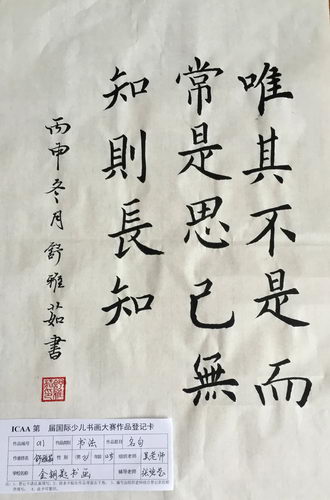 唯其不是而
常是思己無
知則長知
丙申冬月舒雅茹書
ICAA第 届国际少儿书画大赛作品登记卡
作品编号 作品类别 书法 作品题目 名句
作者姓名 舒雅茹 性别 女 年龄 组织老师 吴老师
学校名称 金钥匙书画 辅导老师